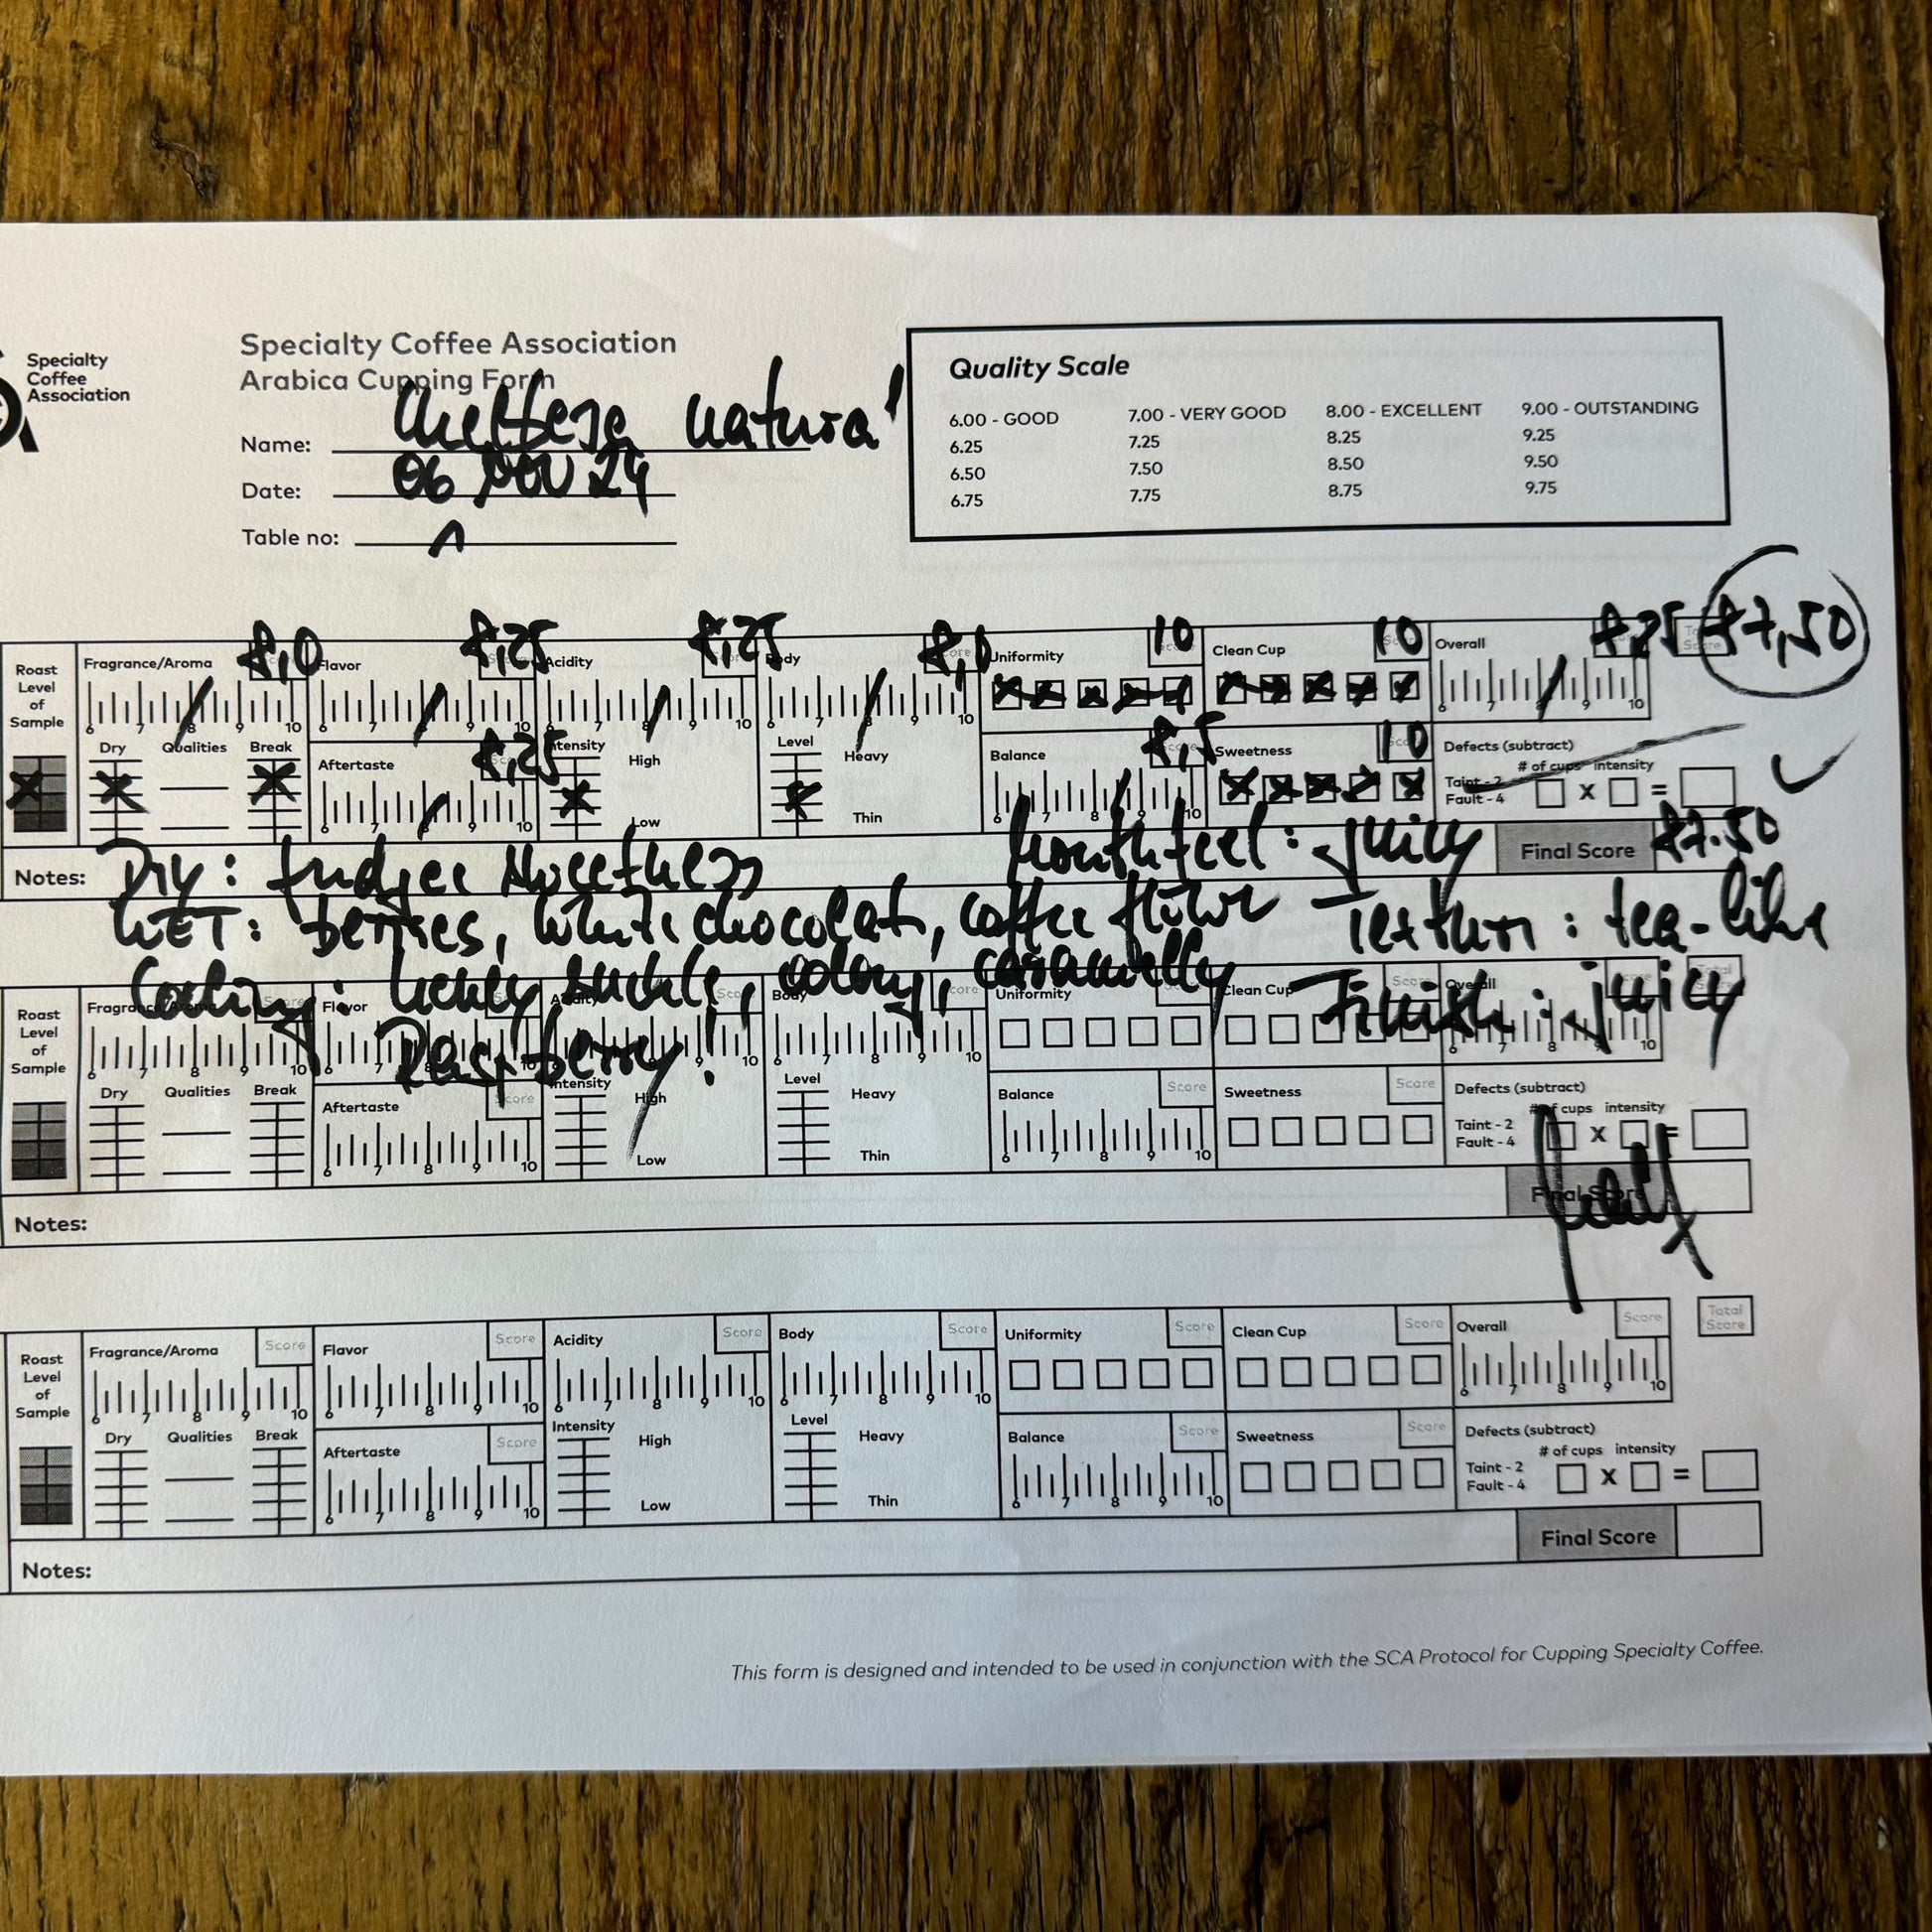 Specialty
Coffee
Association
Specialty Coffee Association
Arabica Cupping Form
Name: natural
Date: 06 NOV 24
Table no: 1
Quality Scale
6.00 - GOOD 7.00 - VERY GOOD 8.00 - EXCELLENT 9.00 - OUTSTANDING
6.25 7.25 8.25 9.25
6.50 7.50 8.50 9.50
6.75 7.75 8.75 9.75
Roast Level of Sample
Fragrance/Aroma 8,0
6 7 8 9 10
Dry Qualities Break
Flavor 8,25
6 7 8 9 10
Aftertaste 8,25
6 7 8 9 10
Acidity 8,25
6 7 8 9 10
Intensity High Low
Body 8,0
6 7 8 9 10
Level Heavy Thin
Uniformity 10
Balance 8,5
6 7 8 9 10
Clean Cup 10
Sweetness 10
Overall 8,25
6 7 8 9 10
Total Score 87,50
Defects (subtract)
# of cups intensity
Taint - 2
Fault - 4 x =
Final Score 87.50
Notes: Dry: sweetness
Mouthfeel: juicy
WET: berries, white chocolate, coffee
Texture: tea-like
caramelly
Finish: juicy
Raspberry!
Roast Level of Sample
Fragrance/Aroma Score
6 7 8 9 10
Dry Qualities Break
Flavor
10
Aftertaste Score
6 7 8 9 10
Acidity Score
9 10
Intensity High Low
Body Score
6 7 8 9 10
Level Heavy Thin
Uniformity
Balance Score
6 7 8 9 10
Clean Cup Score
Sweetness Score
Overall
6 7 8 9 10
Total Score
Defects (subtract)
# of cups intensity
Taint - 2
Fault - 4 x =
Final Score
Notes:
Roast Level of Sample
Fragrance/Aroma Score
6 7 8 9 10
Dry Qualities Break
Flavor Score
6 7 8 9 10
Aftertaste Score
6 7 8 9 10
Acidity Score
6 7 8 9 10
Intensity High Low
Body Score
6 7 8 9 10
Level Heavy Thin
Uniformity Score
Balance Score
6 7 8 9 10
Clean Cup Score
Sweetness Score
Overall Score
6 7 8 9 10
Total Score
Defects (subtract)
# of cups intensity
Taint - 2
Fault - 4 x =
Final Score
Notes:
This form is designed and intended to be used in conjunction with the SCA Protocol for Cupping Specialty Coffee.